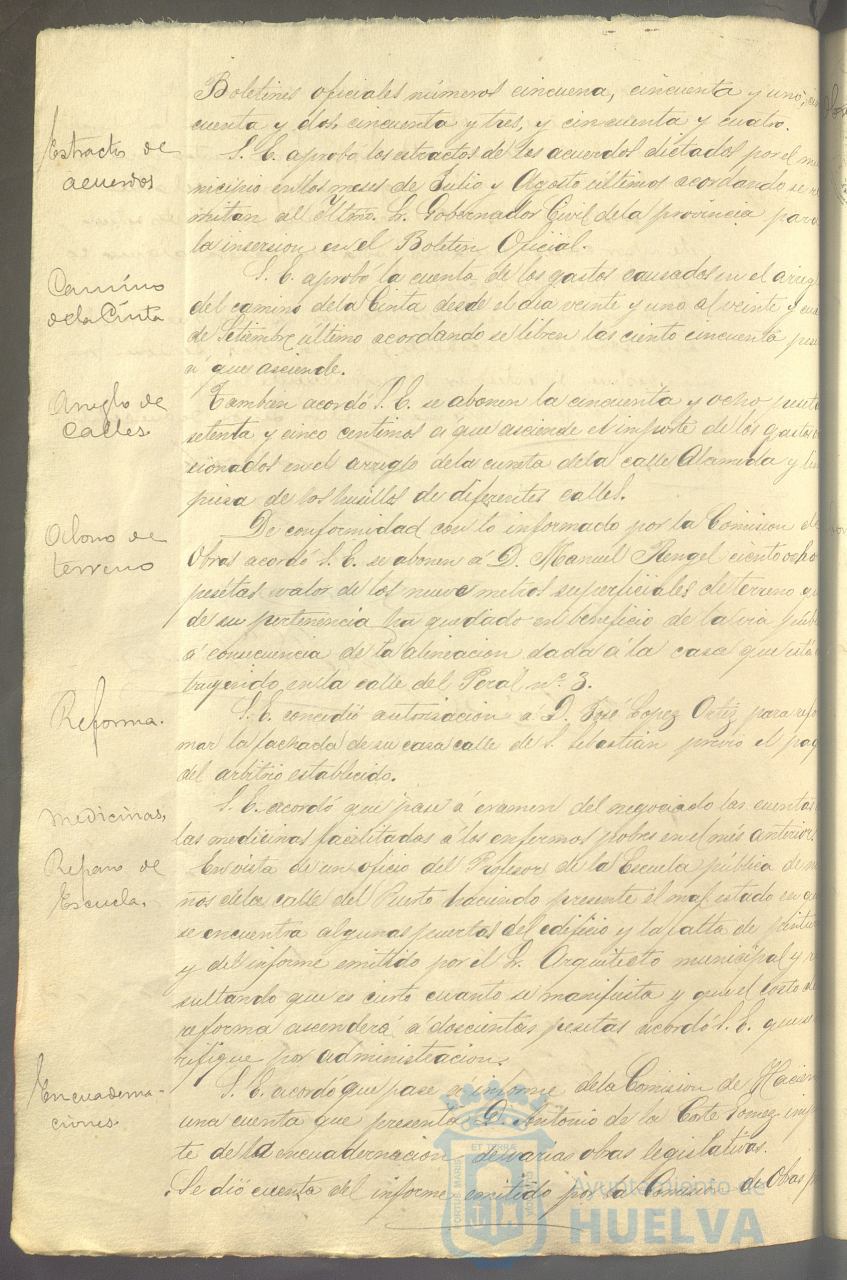 Boletines oficiales números cincuena, cincuenta y uno, cin
cuenta y dos, cincuenta y tres, y cincuenta y cuatro.
Estracto de
acuerdos
S. E. aprobó los estractos de los acuerdos dictados por el mu
nicipio en los meses de Julio y Agosto últimos acordando se re
mitan al Iltmo. Sr. Gobernador Civil de la provincia para
la insersion en el Boletin Oficial.
Camino
de la Cinta
S. E. aprobó la cuenta de los gastos causados en el arreg
del camino de la Cinta desde el dia veinte y uno al veinte y cua
de Setiembre último acordando se libren las ciento cincuenta pese
á que asciende.
Arreglo de
Calles.
Tambien acordó S. E. se abonen la cincuenta y ocho peseta
setenta y cinco centimos á que asciende el importe de los gastos
sionados en el arreglo de la cuneta de la calle Alameda y lim
pieza de los husillos de diferentes calles.
Abono de
terreno
De conformidad con lo informado por la Comision de
Obras acordó S. E. se abonen á D. Manuel Rengel ciento ocho
pesetas valor de los nueve metros superficiales de terreno qu
de su pertenencia ha quedado en beneficio de la via públ
á consecuencia de la alineacion dada á la casa que está
truyendo en la calle del Peral nº 3.
Reforma.
S. E. concedió autorisacion á D. José Lopez Ortiz para refo
mar la fachada de su casa calle de S. Sebastian previo el pag
del arbitrio establecido.
Medicinas,
S. E. acordó que pase á examen del negociado las cuentas
las medicinas facilitadas á los enfermos pobres en el mes anterior.
Reparo de
Escuela.
En vista de un oficio del Profesor de la Escuela pública de ni
ños de la calle del Puerto haciendo presente el mal estado en qu
se encuentra algunas puertas del edificio y la falta de pintu
y del informe emitido por el Sr. Arquitecto municipal y re
sultando que es cierto cuanto se manifiesta y que el costo de
reforma ascenderá á doscientas pesetas acordó S. E. que se
rifique por administracion.
Encuaderna-
ciones.
S. E. acordó que pase á informe de la Comision de Hacien
una cuenta que presenta D. Antonio de la Corte Gomez imp
te de la encuadernacion de varias obras legislativas.
Se dió cuenta del informe emitido por la Comision de Obras p
Ayuntamiento de
HUELVA